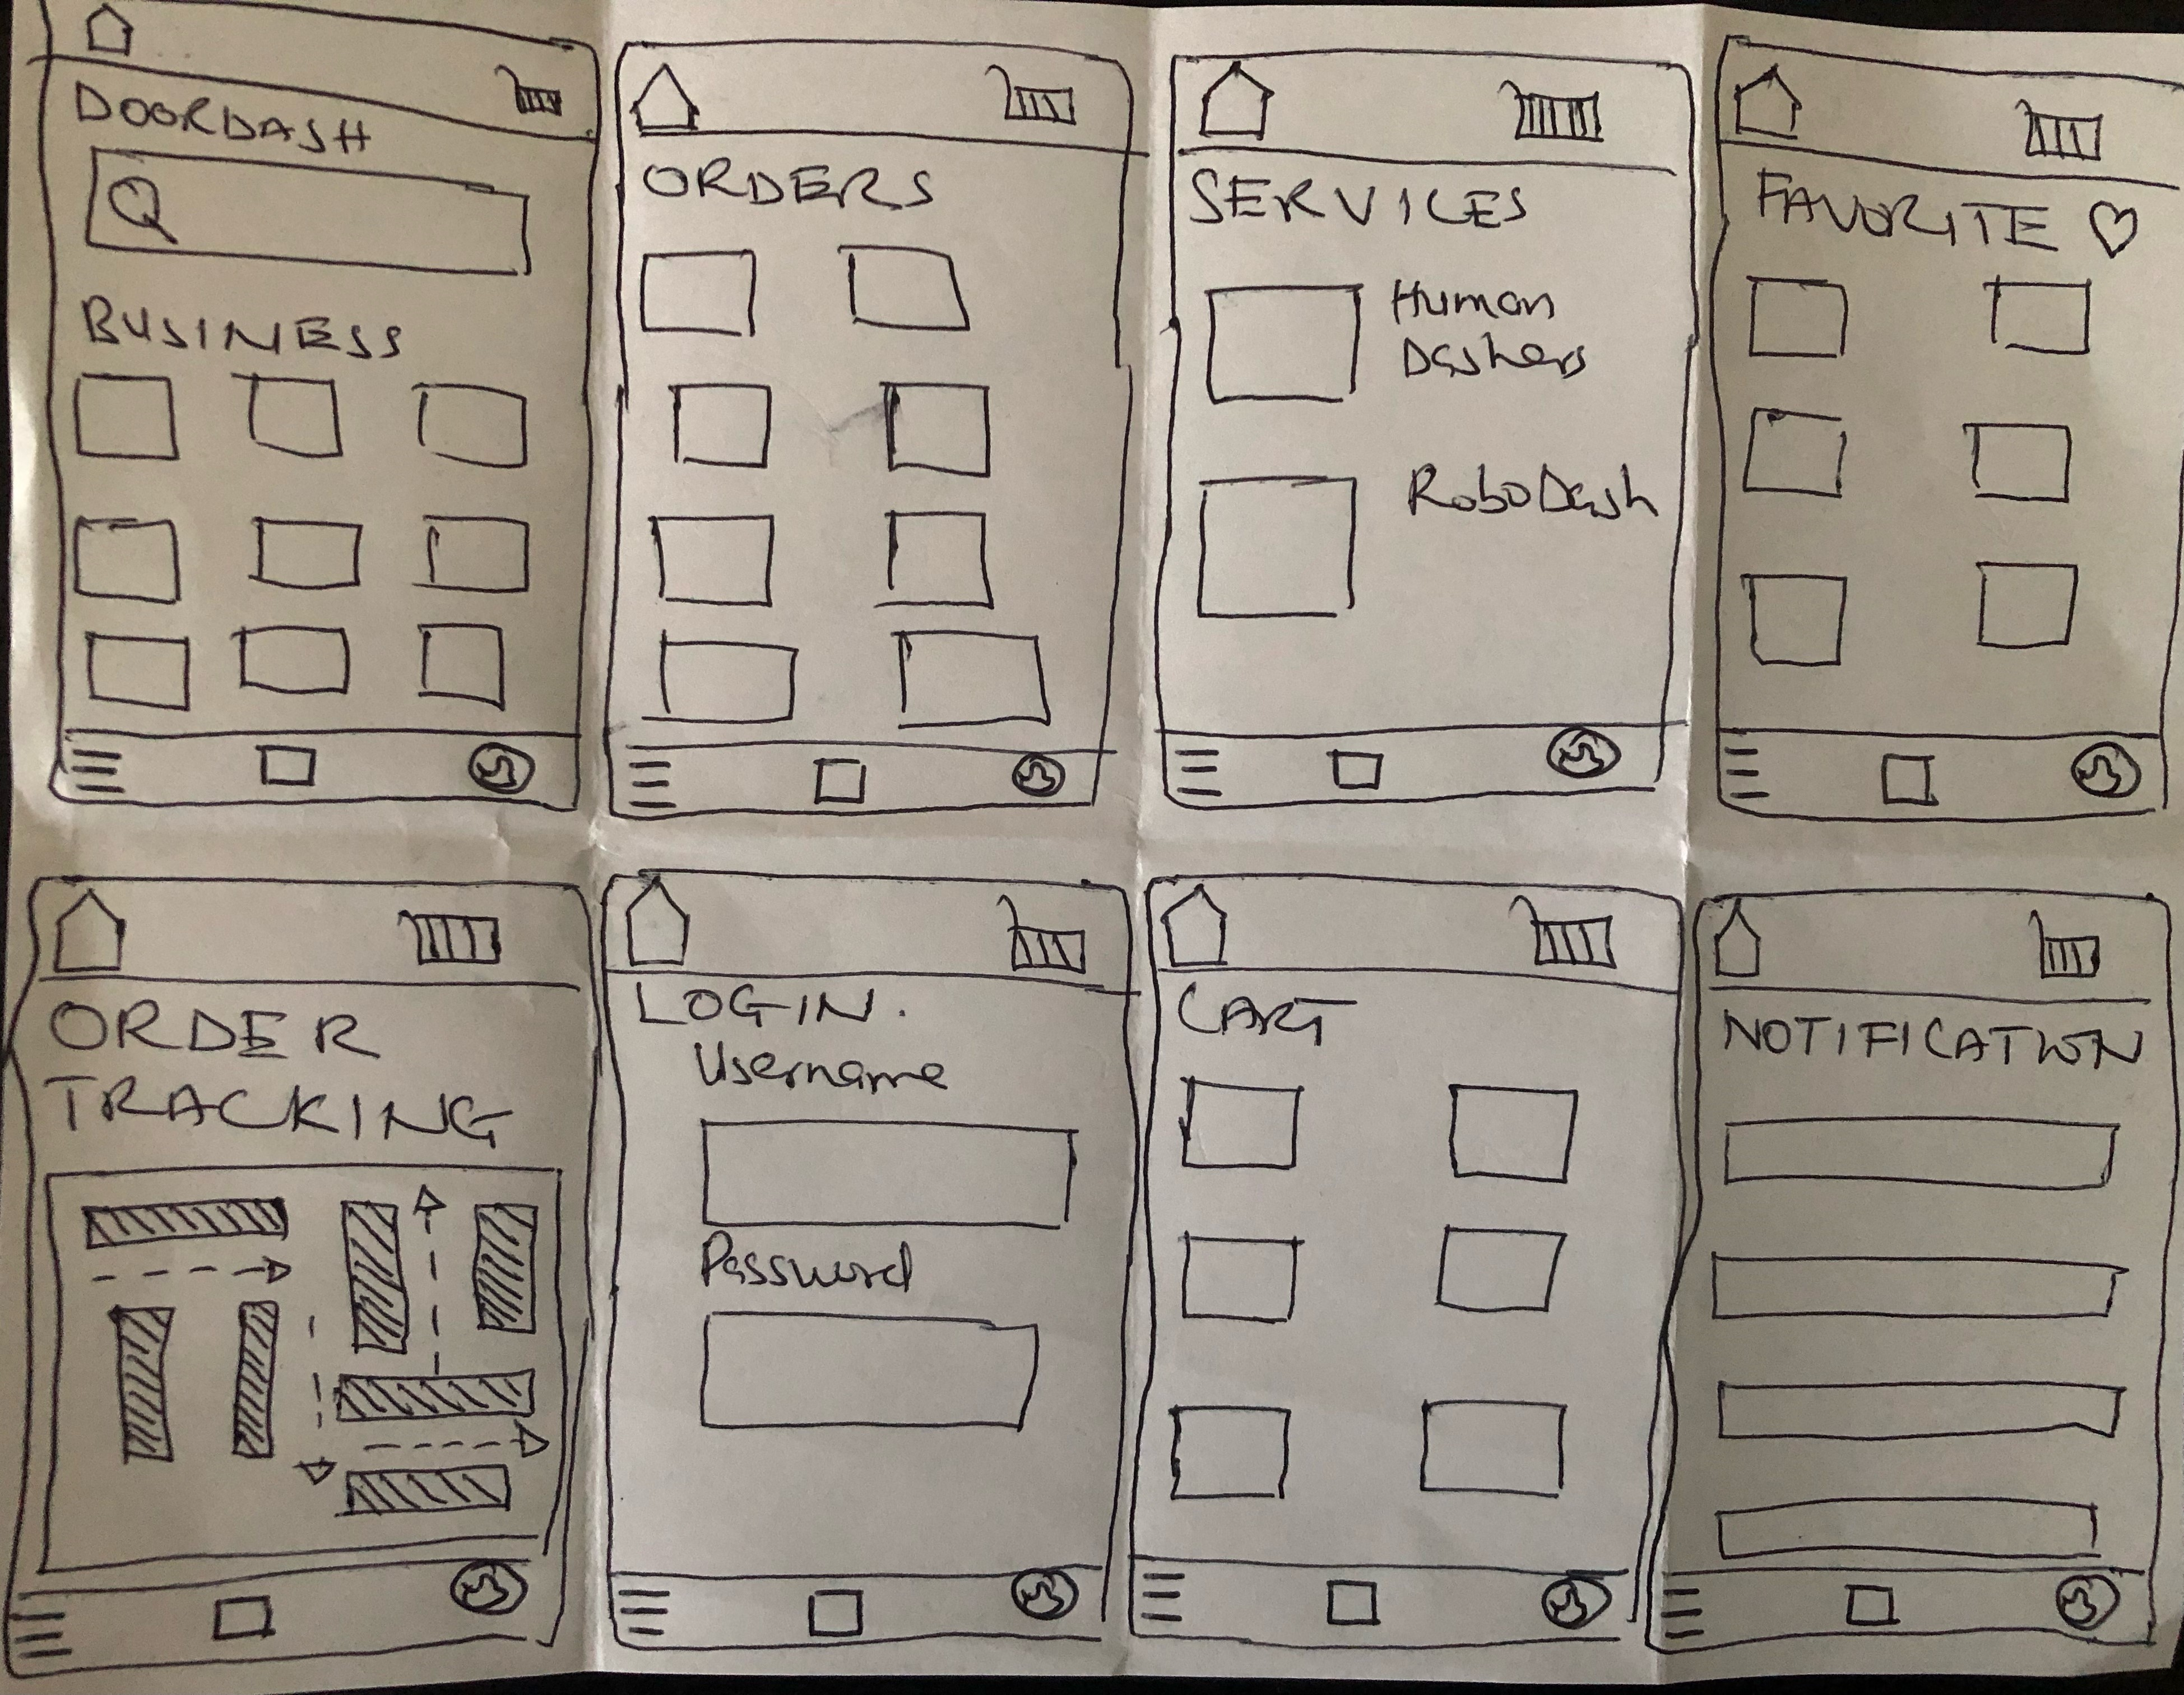 DOORDASH
BUSINESS
ORDERS
SERVICES
Human
Dashers
RoboDash
FAVORITE
ORDER
TRACKING
LOGIN.
Username
Password
CART
NOTIFICATION